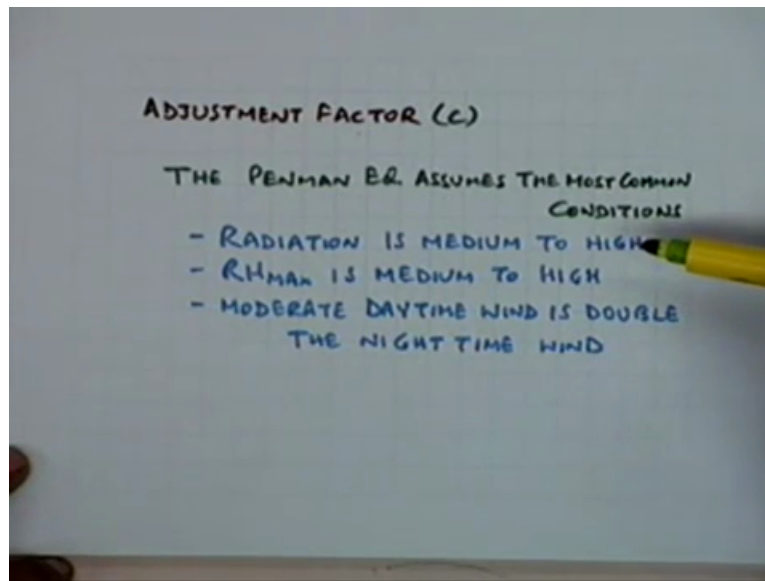 ADJUSTMENT FACTOR (C)
THE PENMAN EQ. ASSUMES THE MOST COMMON
CONDITIONS
- RADIATION IS MEDIUM TO HIGH
- RHMAX IS MEDIUM TO HIGH
- MODERATE DAYTIME WIND IS DOUBLE
THE NIGHT TIME WIND